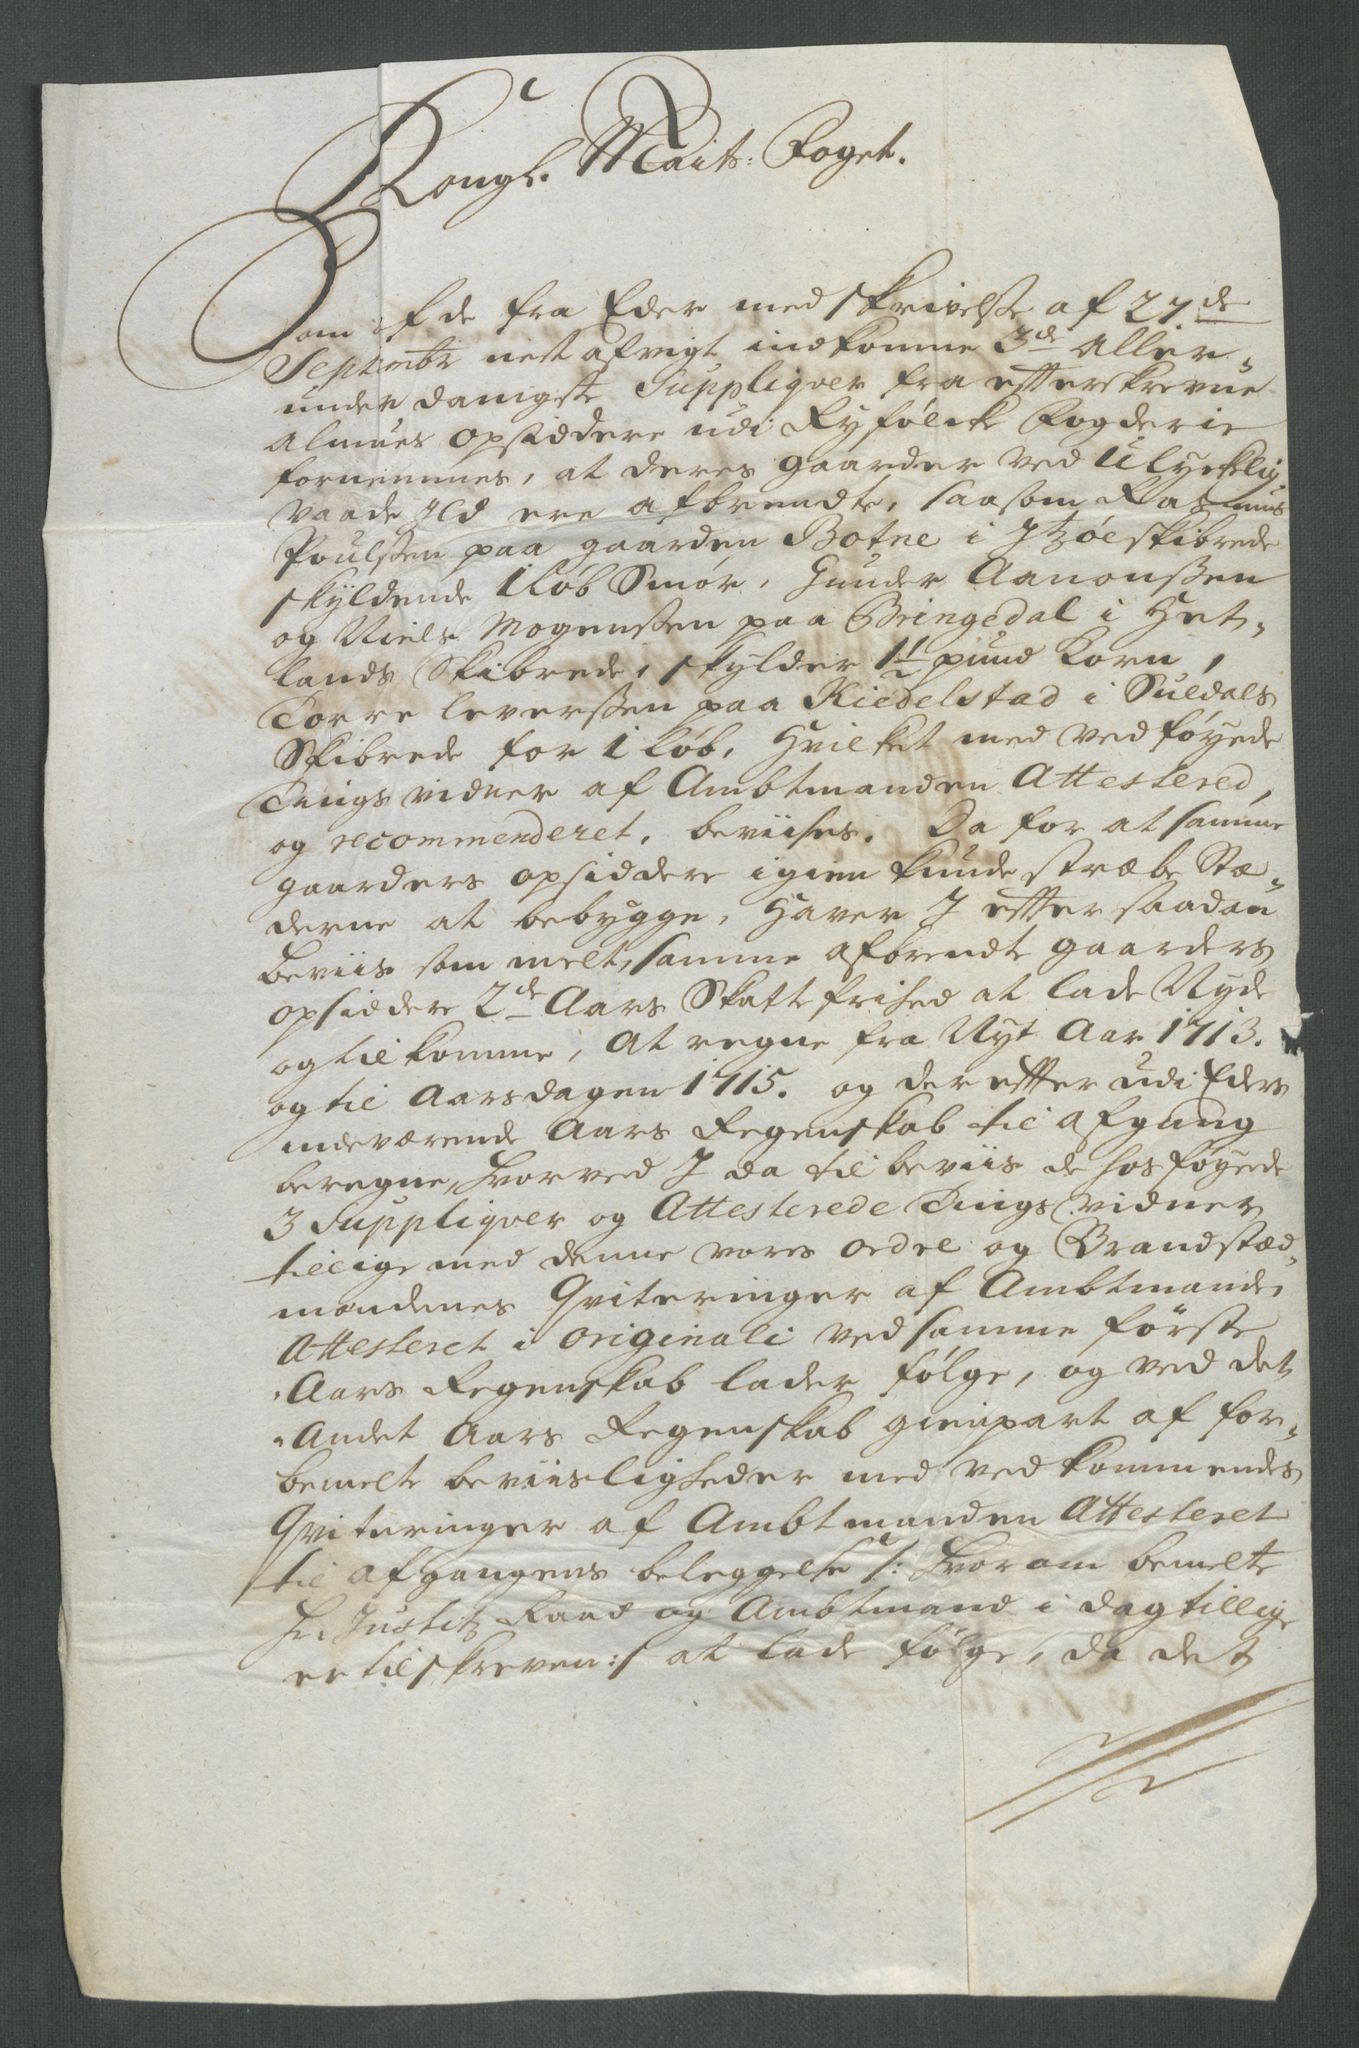 Kongl. Maits: Foget.
Som af de fra Eder med skrivelse af 27de
Septembr nest afvigt indkomne 3de aller-
underdanigste Suppliqver fra effterskrevne
Almues opsiddere udi Ryfölck Fogderie
fornemmes, at deres gaarder ved Ulyckelig
vaade Ild ere afbrendte, saasom Rasmus
Poulssen paa gaarden Botne i Jzöe skibrede
skyldende 1 Löb Smör, Gunder Aanonssen
og Niels Mogenssen paa Bringedal i Het-
lands Skibrede, skylder 1½ pund Korn,
Torre leverssen paa Kiedelstad i Suldals
Skibrede for 1 Löb, Hvilket med vedföyede
Tings vidner af Ambtmanden Attestered,
og recommenderet, beviises. Da for at samme
gaarders opsiddere igien kunde stræbe Stæ-
derne at bebygge, Haver J effter saadan
Beviis som melt, samme afbrendte gaarders
opsiddere 2de Aars Skatte frihed at lade Nyde
og tilkomme, At regne fra Nyt Aar 1713.
og til Aarsdagen 1715. og der effter udi Eders
indeværende Aars Regenskab til afgang
beregne, hvorved J da til beviis de hosföyede
3 Suppliqver og Attesterede Tings vidner
tillige med denne vores ordre og Brandstæd-
mændenes Qviteringer af Ambtmand
Attesteret i originali ved samme förste
Aars Regenskab lader fölge, og ved det
Andet Aars Regenskab gienpart af for-
bemelte beviisligheder med vedkommendes
Qviteringer af Ambtmanden Attesteret
til afgangens beleggelse /: hvorom bemelte
Hr. Justitz Raad og Ambtmand i dag tillige
er tilskreven :/ at lade fölge, da det